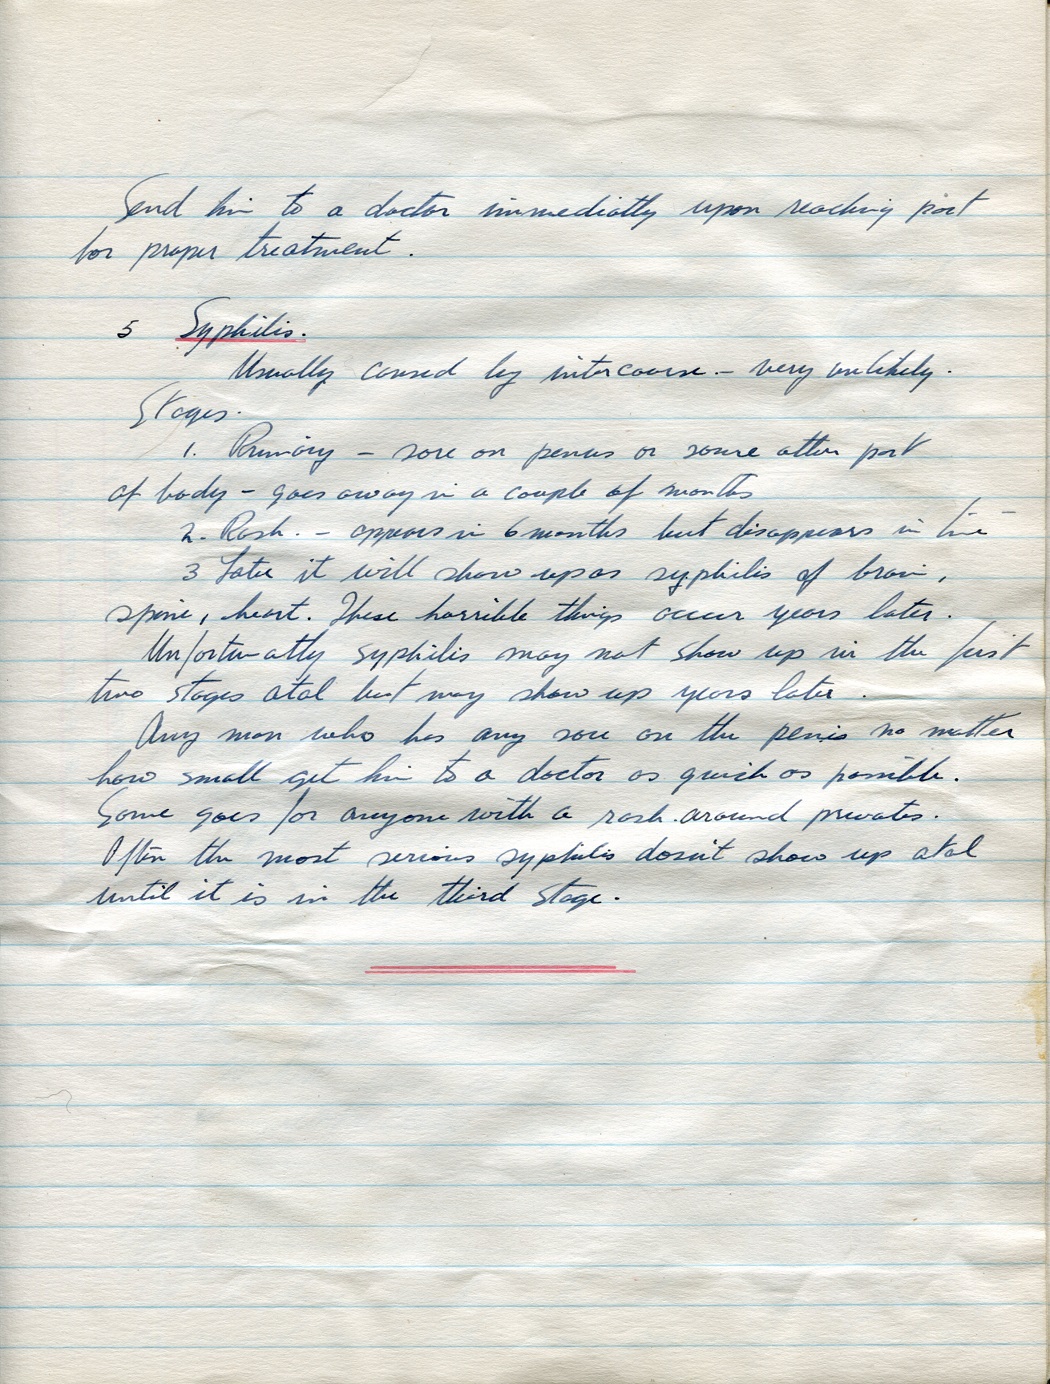 Send him to a doctor immediatly upon reaching port
for proper treatment.
5 Syphilis.
Usually caused by intercourse. - very unlikely.
Stages.
1. Primary - sore on penus or some other part
of body - goes away in a couple of months
2. Rash. - appears in 6 months but disappears in time
3 Later it will show up as syphilis of brain,
spine, heart. These horrible things occur years later.
Unfortunatly syphilis may not show up in the first
two stages atal but may show up years later.
Any man who has any sore on the penis no matter
how small get him to a doctor as quick as possible.
Same goes for anyone with a rash around privates.
Often the most serious syphilis dosn't show up atal
until it is in the third stage.